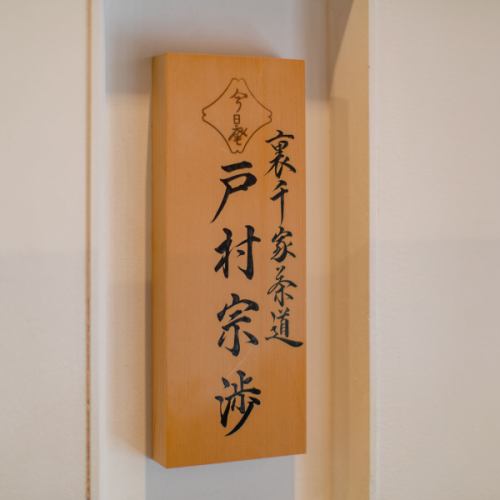 今日庵
裏千家茶道
戸村宗渉